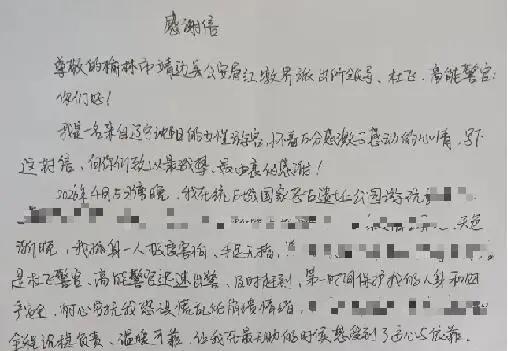 感谢信
尊敬的榆林市靖边县公安局红墩界派出所领导、杜飞、高能警官:
你们好!
我是一名来自辽宁沈阳的女性游客,怀着万分感激与感动的心情,写下
这封信,向你们致以最诚挚、最由衷的感谢!
2026年4月5日傍晚,我在统万城国家考古遗址公园游玩
天色
渐晚,我独身一人极度害怕,手足无措,
是杜飞警官、高能警官迅速出警、及时赶到,第一时间保护我的人身和财
产安全,耐心安抚我恐惧慌乱的崩溃情绪,
全程认真负责、温暖可靠,让我在最无助的时候感受到了安心与依靠。